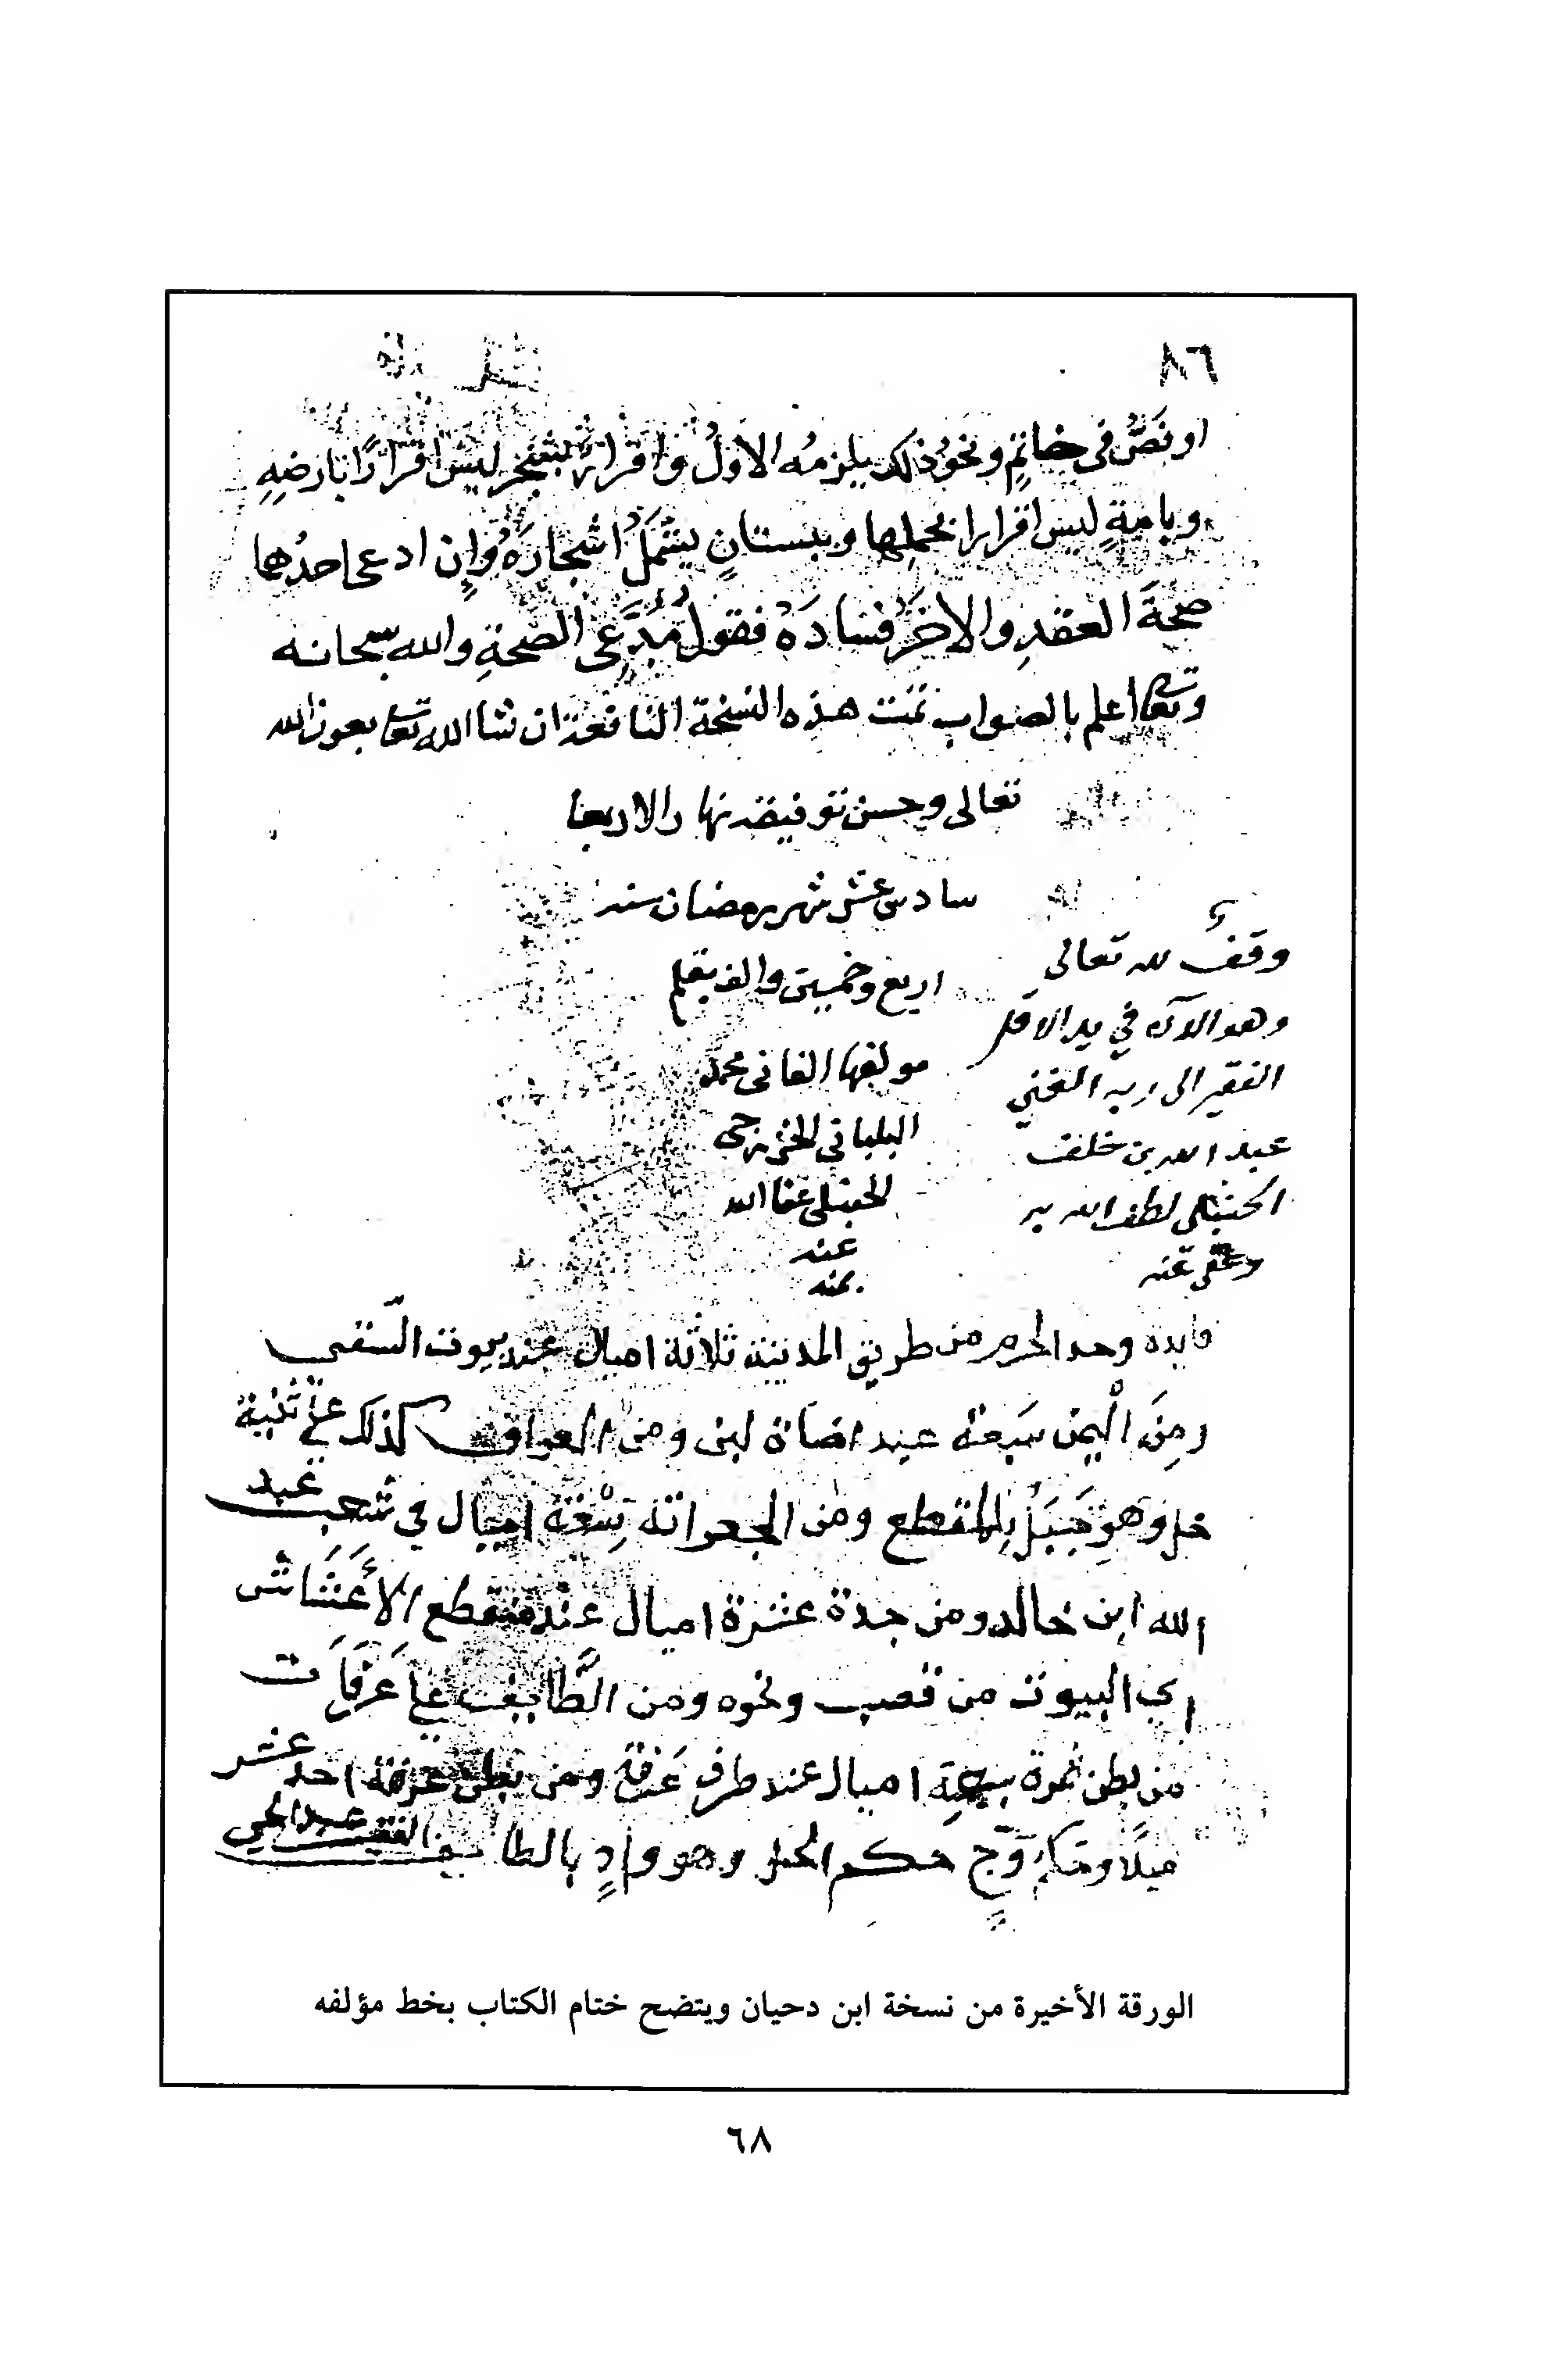 ٨٦
او نَصُّ فى خاتمٍ ونحوُ ذلك يلزمُه الاولُ واقرارُه بشجرٍ ليسَ اقرارًا بارضِهِ
وبامةٍ ليس اقرارا بحملِها وببستانٍ يشملُ اشجارَهُ وإن ادعى احدُهما
صحَّةَ العقدِ والاخرُ فسادَهُ فقولُ مدَّعِى الصحةِ والله سبحانه
وتعا اعلم بالصواب تمت هذه النسخة النافعة ان شا الله تعا بعون الله
تعالى وحسن توفيقه نهار الاربعا
سادس عشر شهر رمضان سنه
اربع وخمسين والف بقلم
مولفها الفانى محمد
البلبانى الخزرجى
الحنبلى عفا الله
عنه
بمنه
وقف لله تعالى
وهو الآن في يد الاقل
الفقير الى ربه الغني
عبد الله بن خلف
الحنبلي لطف الله به
وعفى عنه
فايدة وحد الحرم من طريق المدينة ثلاثة اميال عند بيوت السّقى
ومِنَ الْيمن سَبعة عند اضاة لبن ومن العراق كذلك على ثنية
خل وهو جَبَل بالمقطع ومن الجعرانة تِسْعَة اميال في شعب عبد
الله ابن خالد ومن جدة عشرة اميال عند منقطع الأَعْشَاش
اى البيوت من قصب ونحوه ومن الطَّايف على عَرَفَات
من بطن نمرة سبعة اميال عند طرف عَرَفَة ومن بطن عرفة احد عشر
ميلًا وحكم وَّجٍّ حكم الحل وهو وادٍ بالطايف الفقير عبد الحي
الورقة الأخيرة من نسخة ابن دحيان ويتضح ختام الكتاب بخط مؤلفه
٦٨